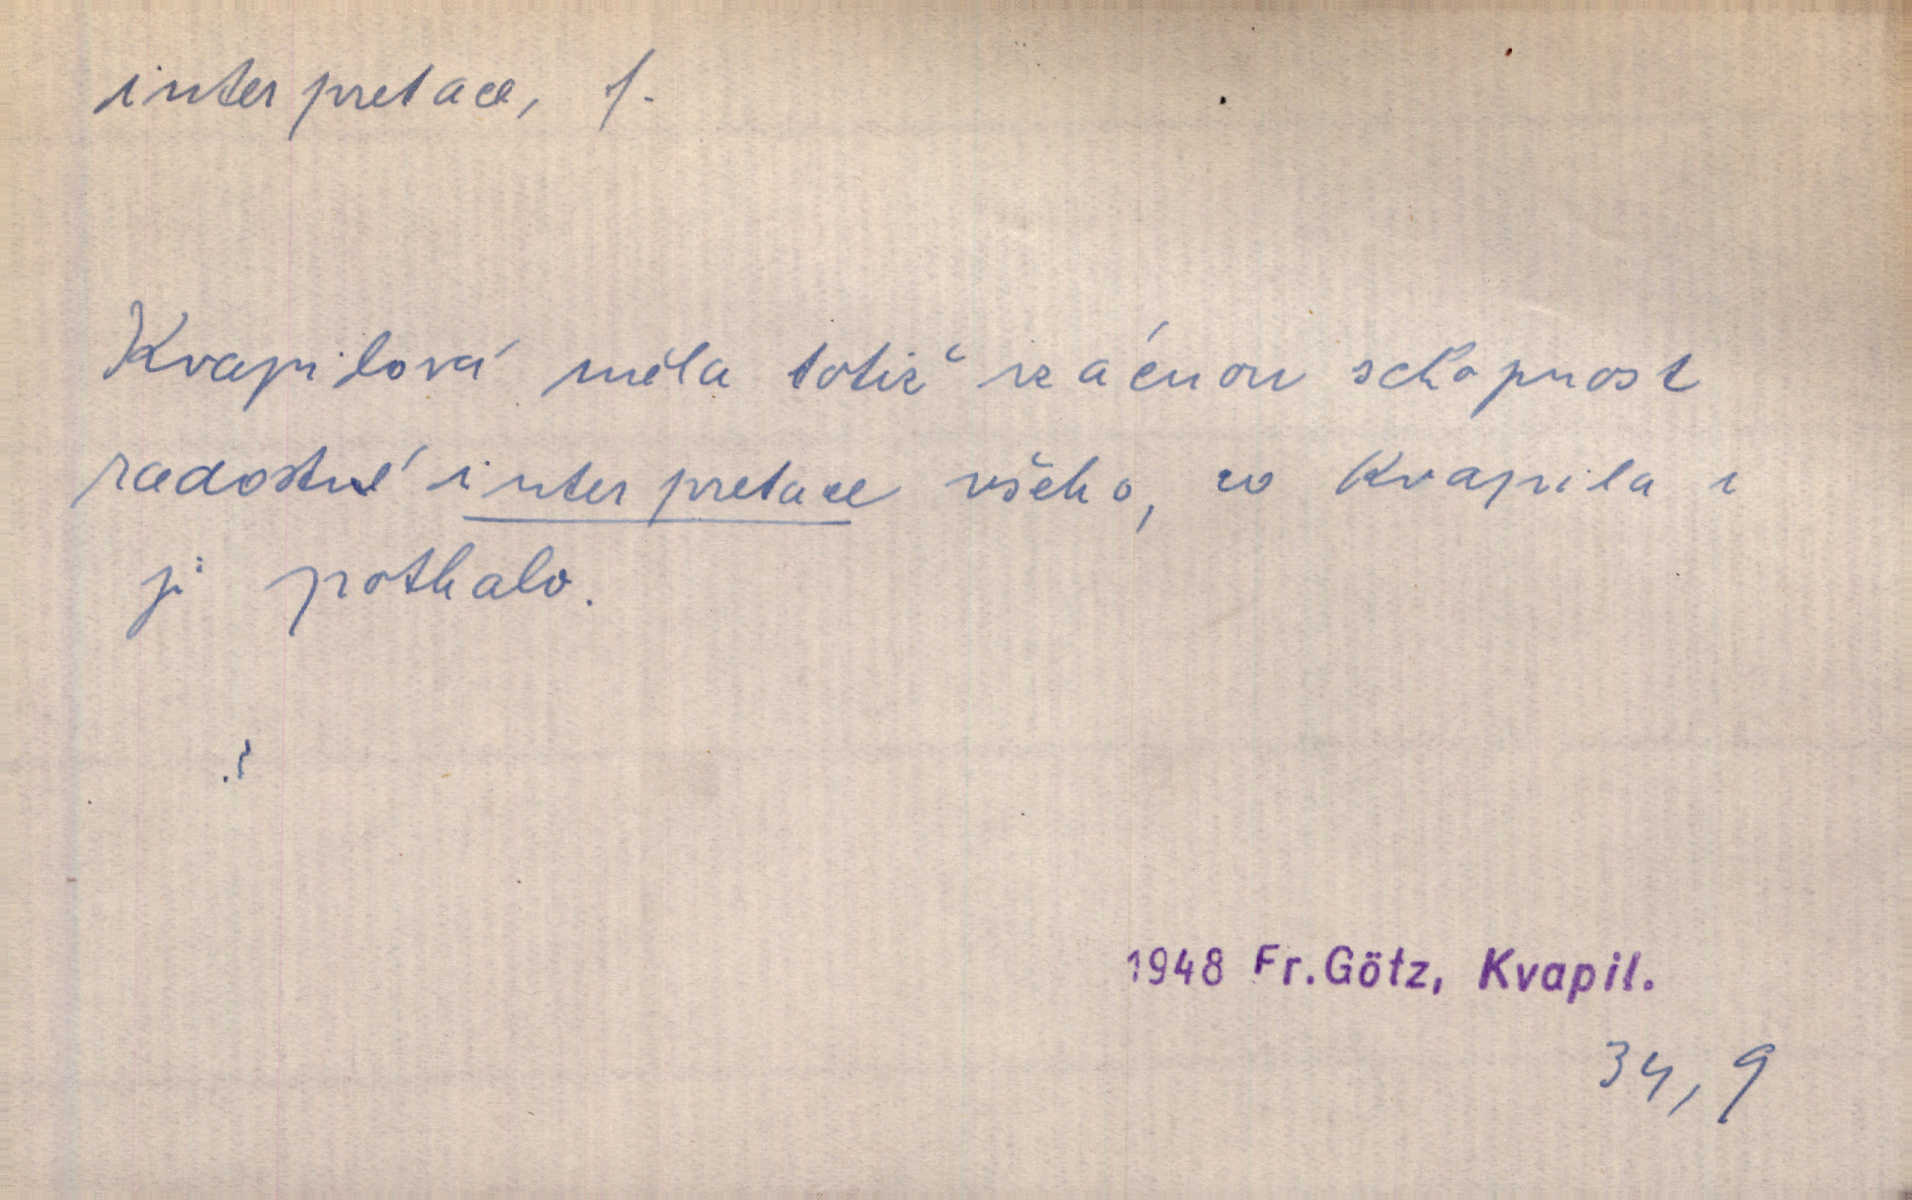 interpretace, f.
Kvapilová měla totiž vzácnou schopnost
radostné interpretace všeho, co Kvapila i
ji potkalo.
1948 Fr. Götz, Kvapil.
34, 9